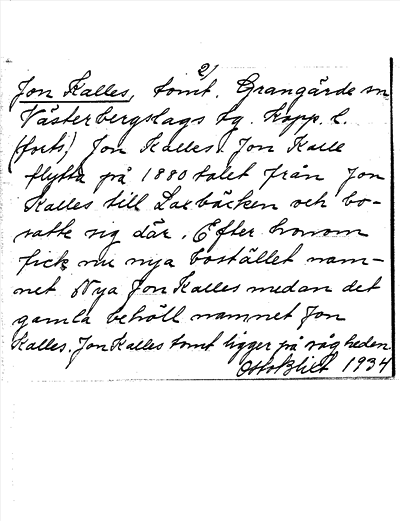 2)
Jon Kalles, tomt. Grangärde sn
Västerbergslags tg. Kopp. l.
(forts.) Jon Kalles. Jon Kalle
flytta på 1880 talet från Jon
Kalles till Laxbäcken och bo-
satte sig där. Efter honom
fick nu nya bostället nam-
net Nya Jon Kalles medan det
gamla behöll namnet Jon
Kalles. Jon Kalles tomt ligger på råg heden
Otto Blixt 1934